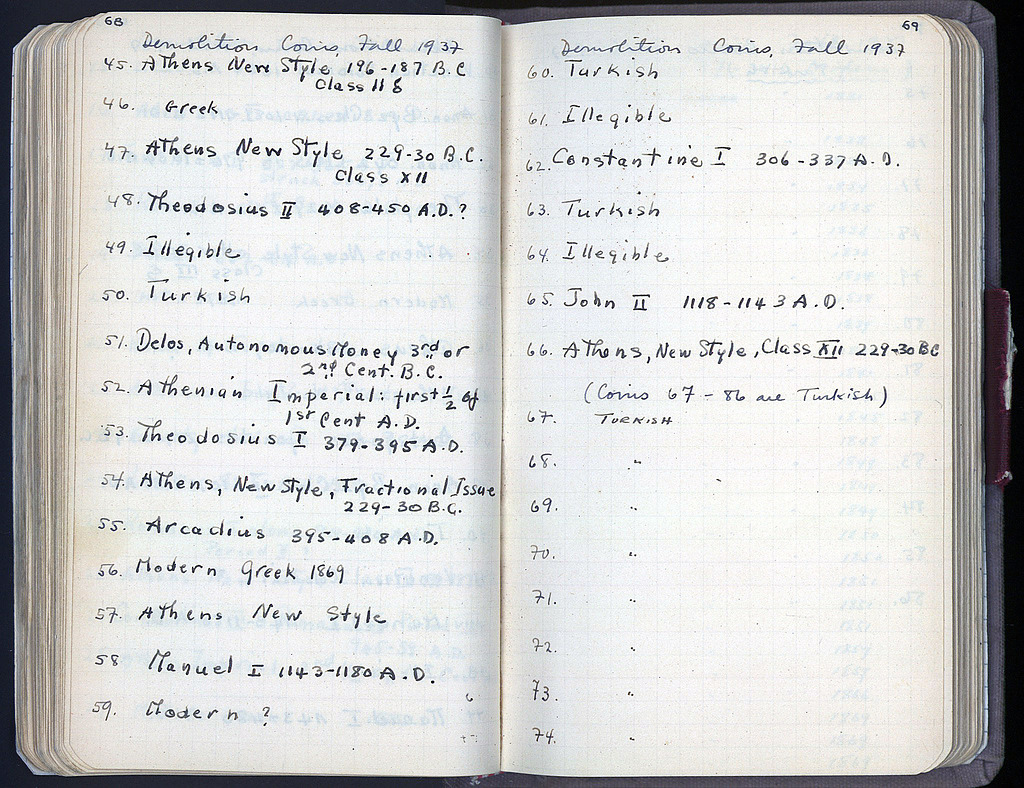 68
Demolition Coins, Fall 1937
45. Athens New Style, 196-187 B.C
Class 118
46. Greek
47. Athens New Style 229-30 B.C.
Class XII
48. Theodosius II 408-450 A.D.?
49. Illegible
50. Turkish
51. Delos, Autonomous Money 3rd or
2nd Cent. B.C.
52. Athenian Imperial: first 1/2 of
1st Cent A.D.
53. Theodosius I 379-395 A.D.
54. Athens, New Style, Fractional Issue
229-30 B.C.
55. Arcadius 395-408 A.D.
56. Modern Greek 1869
57. Athens New Style
58 Manuel I 1143-1180 A.D.
59. Modern ?
69
Demolition Coins, Fall 1937
60. Turkish
61. Illegible
62. Constantine I 306-337 A.D.
63. Turkish
64. Illegible
65. John II 1118-1143 A.D.
66. Athens, New Style, Class XII 229-30 BC
(Coins 67-86 are Turkish)
67. TURKISH
68. "
69. "
70. "
71. "
72. "
73. "
74. "